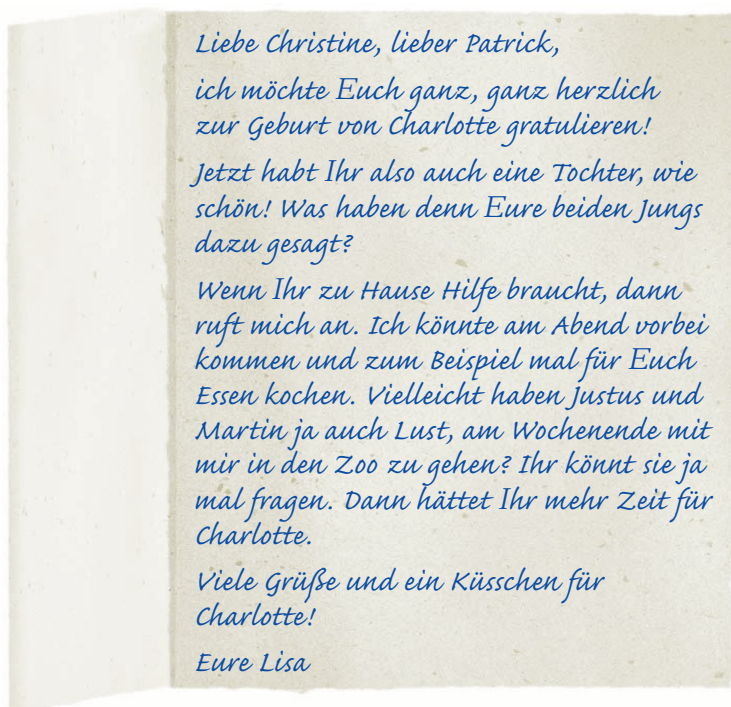 Liebe Christine, lieber Patrick,
ich möchte Euch ganz, ganz herzlich
zur Geburt von Charlotte gratulieren!
Jetzt habt Ihr also auch eine Tochter, wie
schön! Was haben denn Eure beiden Jungs
dazu gesagt?
Wenn Ihr zu Hause Hilfe braucht, dann
ruft mich an. Ich könnte am Abend vorbei
kommen und zum Beispiel mal für Euch
Essen kochen. Vielleicht haben Justus und
Martin ja auch Lust, am Wochenende mit
mir in den Zoo zu gehen? Ihr könnt sie ja
mal fragen. Dann hättet Ihr mehr Zeit für
Charlotte.
Viele Grüße und ein Küsschen für
Charlotte!
Eure Lisa